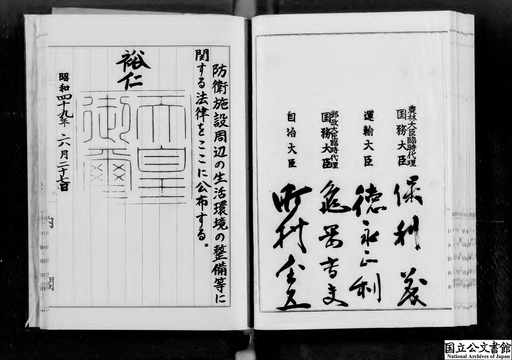 防衛施設周辺の生活環境の整備等に
関する法律をここに公布する。
裕仁
天皇
御璽
昭和四十九年六月二十七日
内閣
農林大臣臨時代理
国務大臣 保利茂
運輸大臣 徳永正利
郵政大臣臨時代理
国務大臣 亀岡高夫
自治大臣 町村金五
国立公文書館
National Archives of Japan